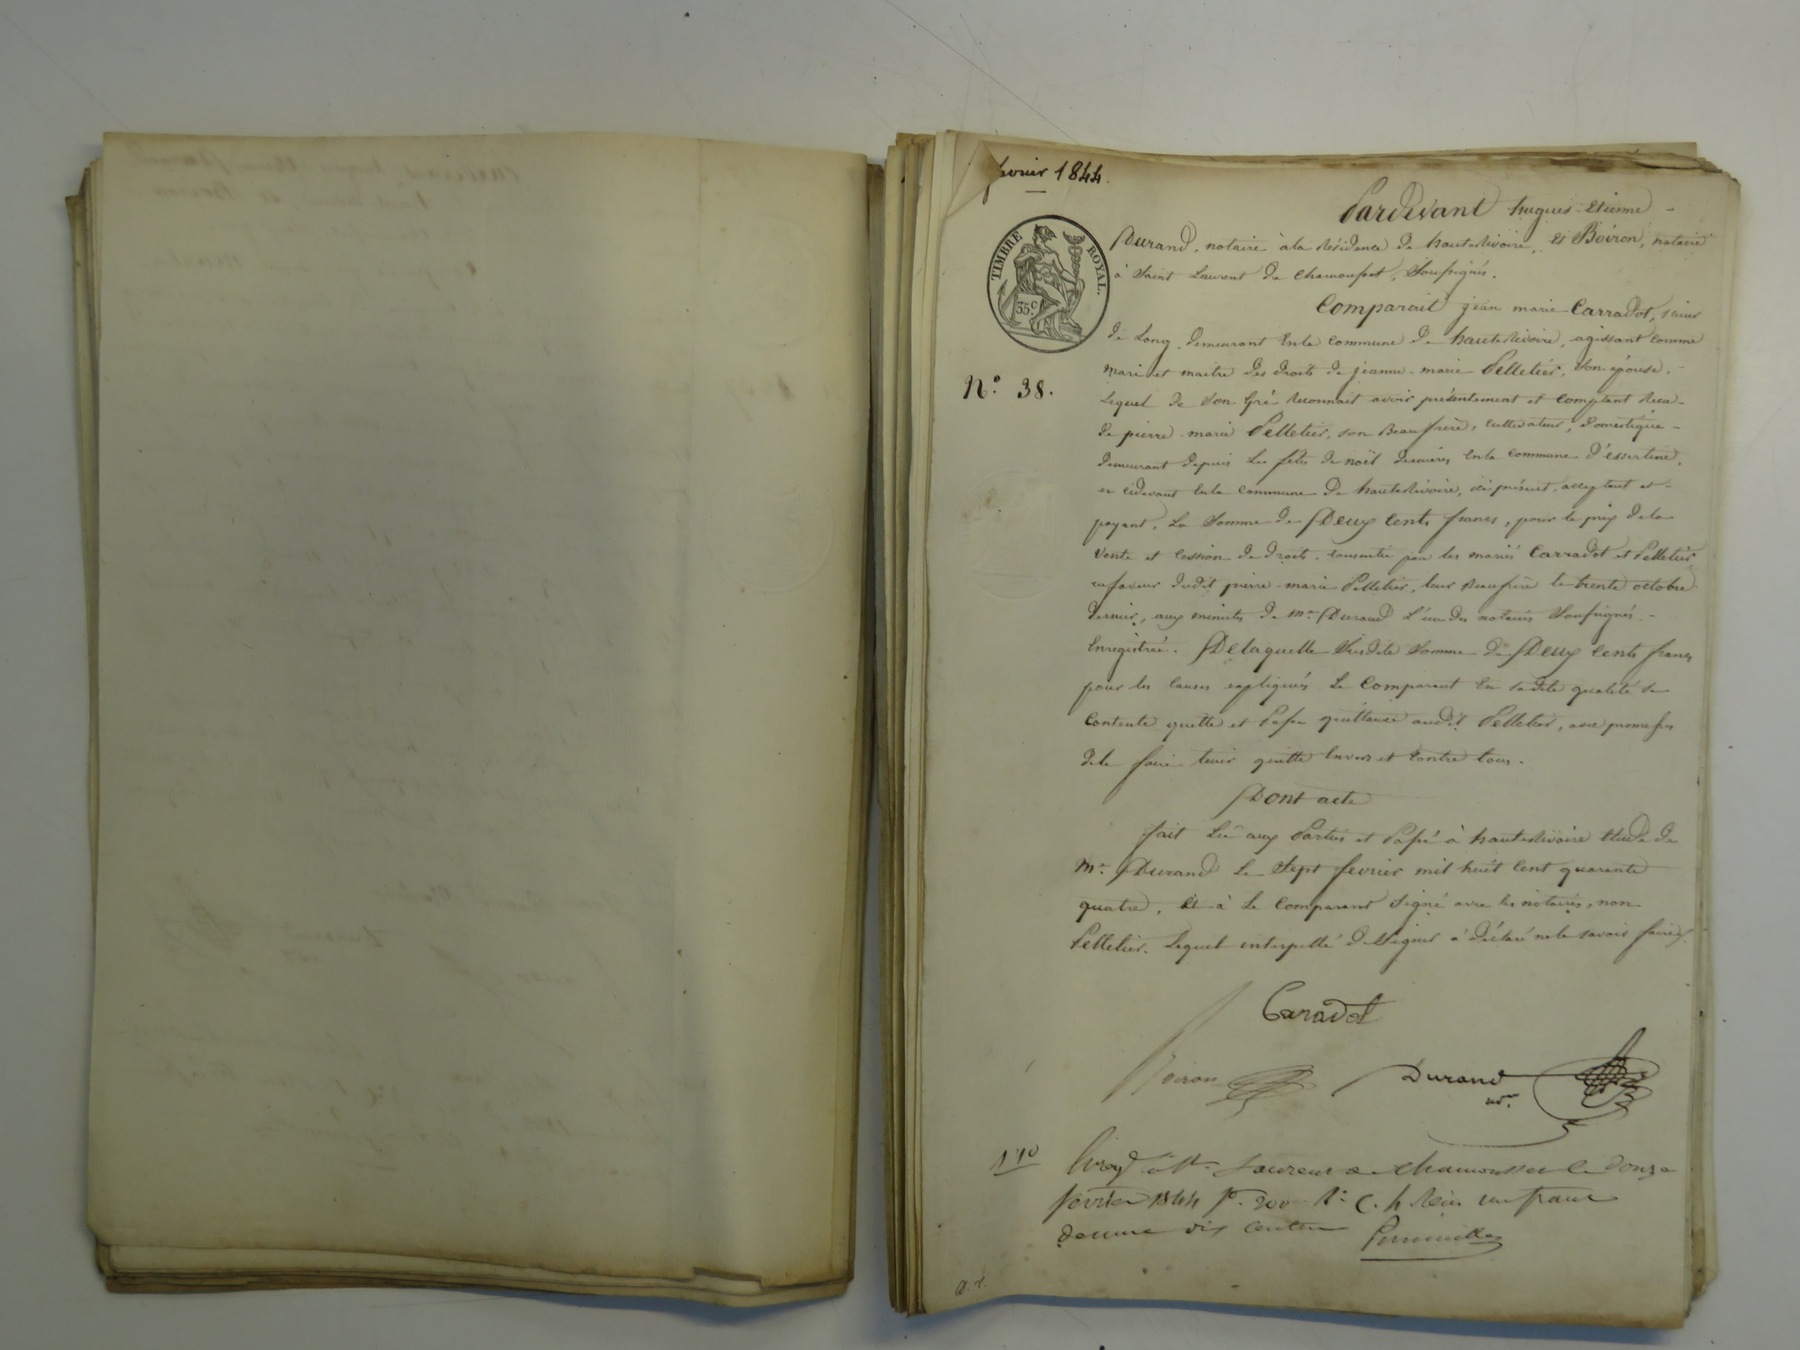 février 1844.
Pardevant hugues-etienne
Durand, notaire à la résidence de hauterivoire, et Boiron, notaire
à Saint Laurent de Chamousset, Soussignés.
TIMBRE ROYAL.
35 c.
Comparait jean marie Carradot,
de Long, demeurant en la commune de hauterivoire, agissant comme
mari et maitre des droits de jeanne-marie Pelletier, son épouse,
N.º 38.
Lequel de son gré reconnait avoir présentement et comptant reçu
de pierre-marie Pelletier, son Beaufrère, cultivateur, domestique
demeurant depuis les fêtes de noël dernières en la commune d'essertine,
et cidevant en la commune de hauterivoire, ici présent, acceptant et
payant, La Somme de Deux cents francs, pour le prix de la
vente et cession de droits consentie par les mariés Carradot et Pelletier
en faveur dudit pierre-marie Pelletier, leur Beaufrère le trente octobre
dernier, aux minutes de Me. Durand L'un des notaires Soussignés.
Enregistrée. De laquelle susdite Somme de Deux Cents francs
pour les causes expliquées Le Comparant en sadite qualité se
Contente quitte et Passe quittance audit Pelletier, avec promesse
de le faire tenir quitte envers et contre tous.
Dont acte
fait Lu aux Parties et Passé à hauterivoire étude de
Me. Durand Le Sept février mil huit cent quarante
quatre, Et à Le Comparant Signé avec les notaires, non
Pelletier. Lequel interpellé de Signer à déclaré ne le savoir faire.
Caradot
Boiron Durand
nre.
1 10 Enregé à St. Laurent de chamousset le douze
février 1844 fo. 200 Ro. C. 4 Reçu un franc
décime dix centimes